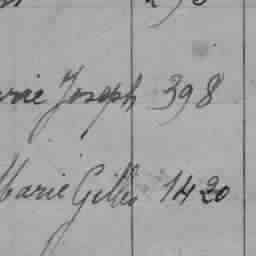 Joseph 398
Marie Gilles 1420